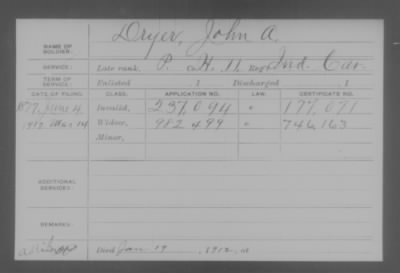 Dryer, John A.
NAME OF SOLDIER:
SERVICE: Late rank, P. Co. H. 11 Reg't Ind. Cav.
TERM OF SERVICE: Enlisted , 1 Discharged , 1
DATE OF FILING. CLASS. APPLICATION NO. LAW. CERTIFICATE NO.
1877, June 4 Invalid, 237,094 " 177,071
1912 Mar 14 Widow, 982,499 " 746,163
Minor,
ADDITIONAL SERVICES:
REMARKS:
Died Jan 19 , 1912, at